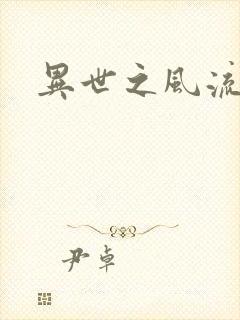 異世之風流
尹卓